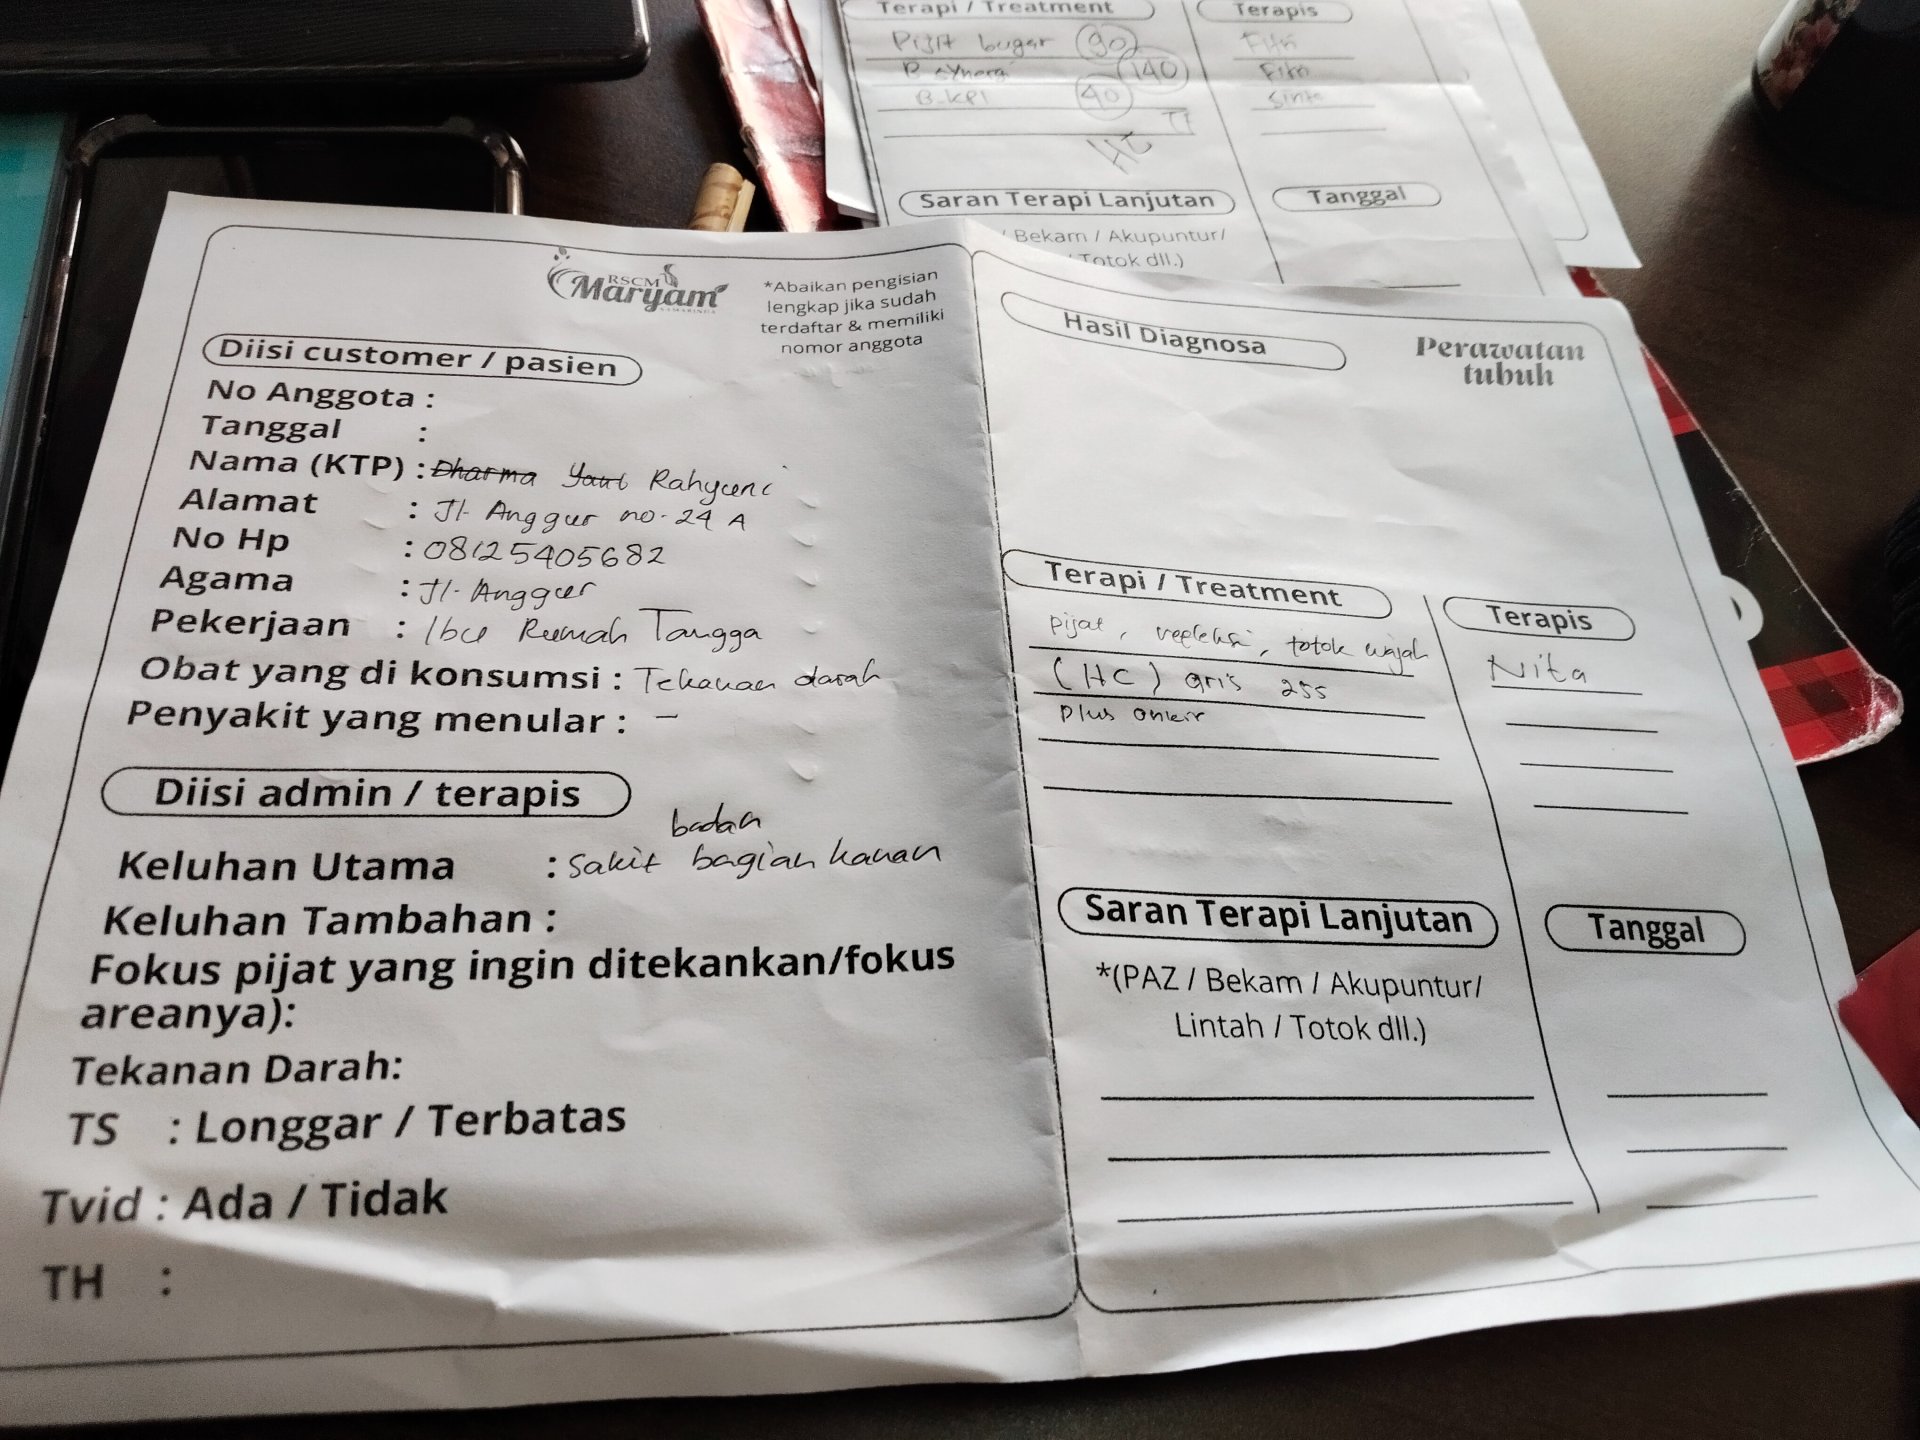 Terapi / Treatment
Terapis
Pijat bugar 90
Fitri
B synergi 140
Fitri
B. KPI 40
Sinta
TT
HC
Saran Terapi Lanjutan
Tanggal
/ Bekam / Akupuntur/
/ Totok dll.)
RSCM
Maryam
SAMARINDA
*Abaikan pengisian
lengkap jika sudah
terdaftar & memiliki
nomor anggota
Diisi customer / pasien
No Anggota :
Tanggal :
Nama (KTP) : Dharma Yanti Rahyuni
Alamat : Jl. Anggur no. 24 A
No Hp : 08125405682
Agama : Jl. Anggur
Pekerjaan : Ibu Rumah Tangga
Obat yang di konsumsi : Tekanan darah
Penyakit yang menular : -
Diisi admin / terapis
badan
Keluhan Utama : Sakit bagian kanan
Keluhan Tambahan :
Fokus pijat yang ingin ditekankan/fokus
areanya):
Tekanan Darah:
TS : Longgar / Terbatas
Tvid : Ada / Tidak
TH :
Hasil Diagnosa
Perawatan
tubuh
Terapi / Treatment
Terapis
pijat, refleksi, totok wajah
Nita
(HC) gris 255
plus onkir
Saran Terapi Lanjutan
Tanggal
*(PAZ / Bekam / Akupuntur/
Lintah / Totok dll.)